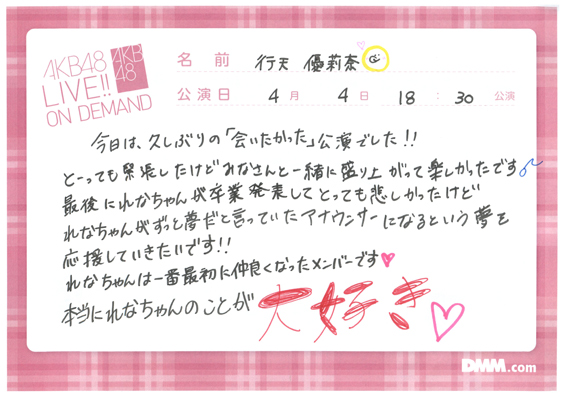 AKB48
LIVE!!
ON DEMAND
AKB
48
名前 行天 優莉奈
公演日 4月 4日 18:30 公演
今日は、久しぶりの「会いたかった」公演でした!!
とーっても緊張したけどみなさんと一緒に盛り上がって楽しかったです♪
最後にれなちゃんが卒業発表してとっても悲しかったけど
れなちゃんがずっと夢だと言っていたアナウンサーになるという夢を
応援していきたいです!!
れなちゃんは一番最初に仲良くなったメンバーです♥
本当にれなちゃんのことが大好き♡
DMM.com